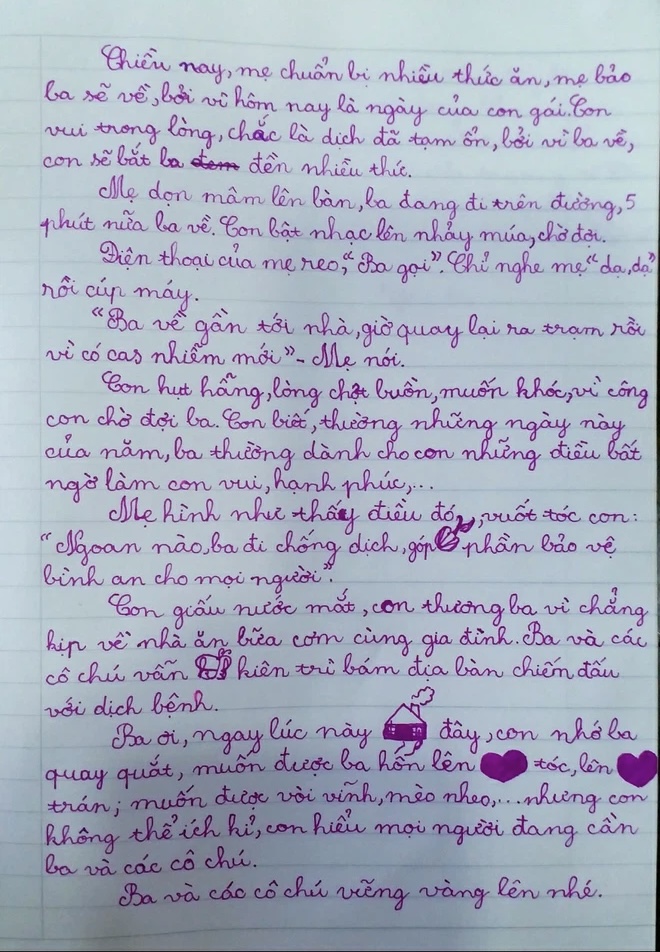 Chiều nay, mẹ chuẩn bị nhiều thức ăn, mẹ bảo
ba sẽ về, bởi vì hôm nay là ngày của con gái. Con
vui trong lòng, chắc là dịch đã tạm ổn, bởi vì ba về,
con sẽ bắt ba đem đền nhiều thức.
Mẹ dọn mâm lên bàn, ba đang đi trên đường, 5
phút nữa ba về. Con bật nhạc lên nhảy múa, chờ đợi.
Điện thoại của mẹ reo, "Ba gọi". Chỉ nghe mẹ "dạ, dạ"
rồi cúp máy.
"Ba về gần tới nhà, giờ quay lại ra trạm rồi
vì có cas nhiễm mới" - Mẹ nói.
Con hụt hẫng, lòng chợt buồn, muốn khóc, vì công
con chờ đợi ba. Con biết, thường những ngày này
của năm, ba thường dành cho con những điều bất
ngờ làm con vui, hạnh phúc,...
Mẹ hình như thấy điều đó, vuốt tóc con:
"Ngoan nào, ba đi chống dịch, góp phần bảo vệ
bình an cho mọi người".
Con giấu nước mắt, con thương ba vì chẳng
kịp về nhà ăn bữa cơm cùng gia đình. Ba và các
cô chú vẫn kiên trì bám địa bàn chiếm đấu
với dịch bệnh.
Ba ơi, ngay lúc này đây, con nhớ ba
quay quắt, muốn được ba hôn lên tóc, lên
trán; muốn được vòi vĩnh, mèo nheo,... nhưng con
không thể ích kỉ, con hiểu mọi người đang cần
ba và các cô chú.
Ba và các cô chú vững vàng lên nhé.